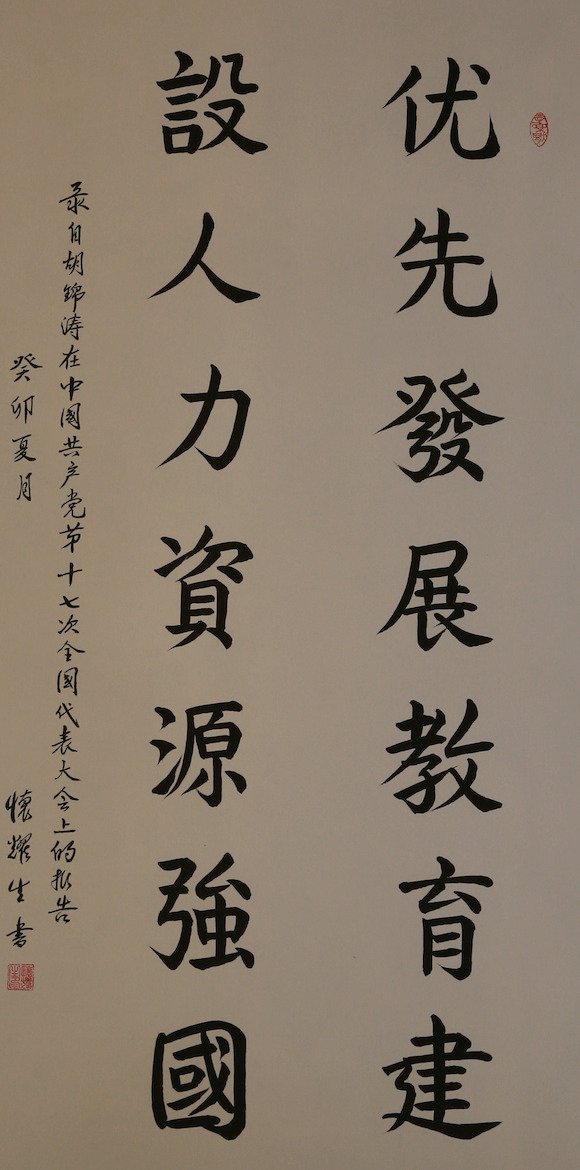 优先發展教育建
設人力資源強國
录自胡锦涛在中国共产党第十七次全国代表大会上的报告
癸卯夏月
懷耀生书